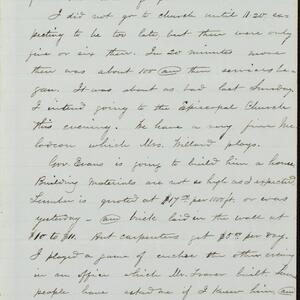 I did not go to church until 11.20 ex-
pecting to be too late, but there were only
five or six there. In 20 minutes more
there was about 100 and then services be-
gan. It was about as bad last Sunday.
I intend going to the Episcopal Church
this evening. We have a very fine Me-
lodeon which Mrs. Willard plays.
Gov. Evans is going to build him a house.
Building materials are not as high as I expected.
Lumber is quoted at $17.00 per 100 ft. or was
yesterday – and brick laid in the wall at
$10 to $11. But carpenters get $5.00 per day.
I played a game of euchre the other evening
in an office which Mr. built. Some
people have asked me if I knew him and